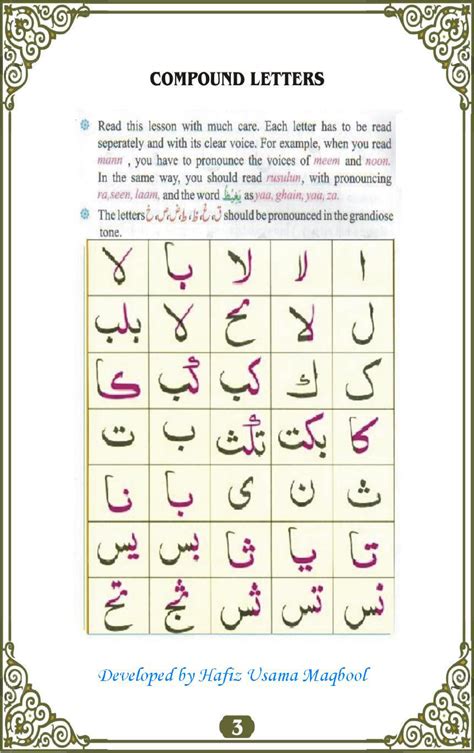 COMPOUND LETTERS
Read this lesson with much care. Each letter has to be read
seperately and with its clear voice. For example, when you read
mann , you have to pronounce the voices of meem and noon.
In the same way, you should read rusulun, with pronouncing
ra,seen, laam, and the word يَغِيْظُ as yaa, ghain, yaa, za.
The letters خ، ص، ض، ط، ظ، غ، ق should be pronounced in the grandiose
tone.
ا لا لا با لا
ل لا لا بلب
ک ك كب كب كا
كا بكت تكث ب ت
ث ن ى با نا
تا يا ثا بس يس
نس تس ثس ثج تح
Developed by Hafiz Usama Maqbool
3